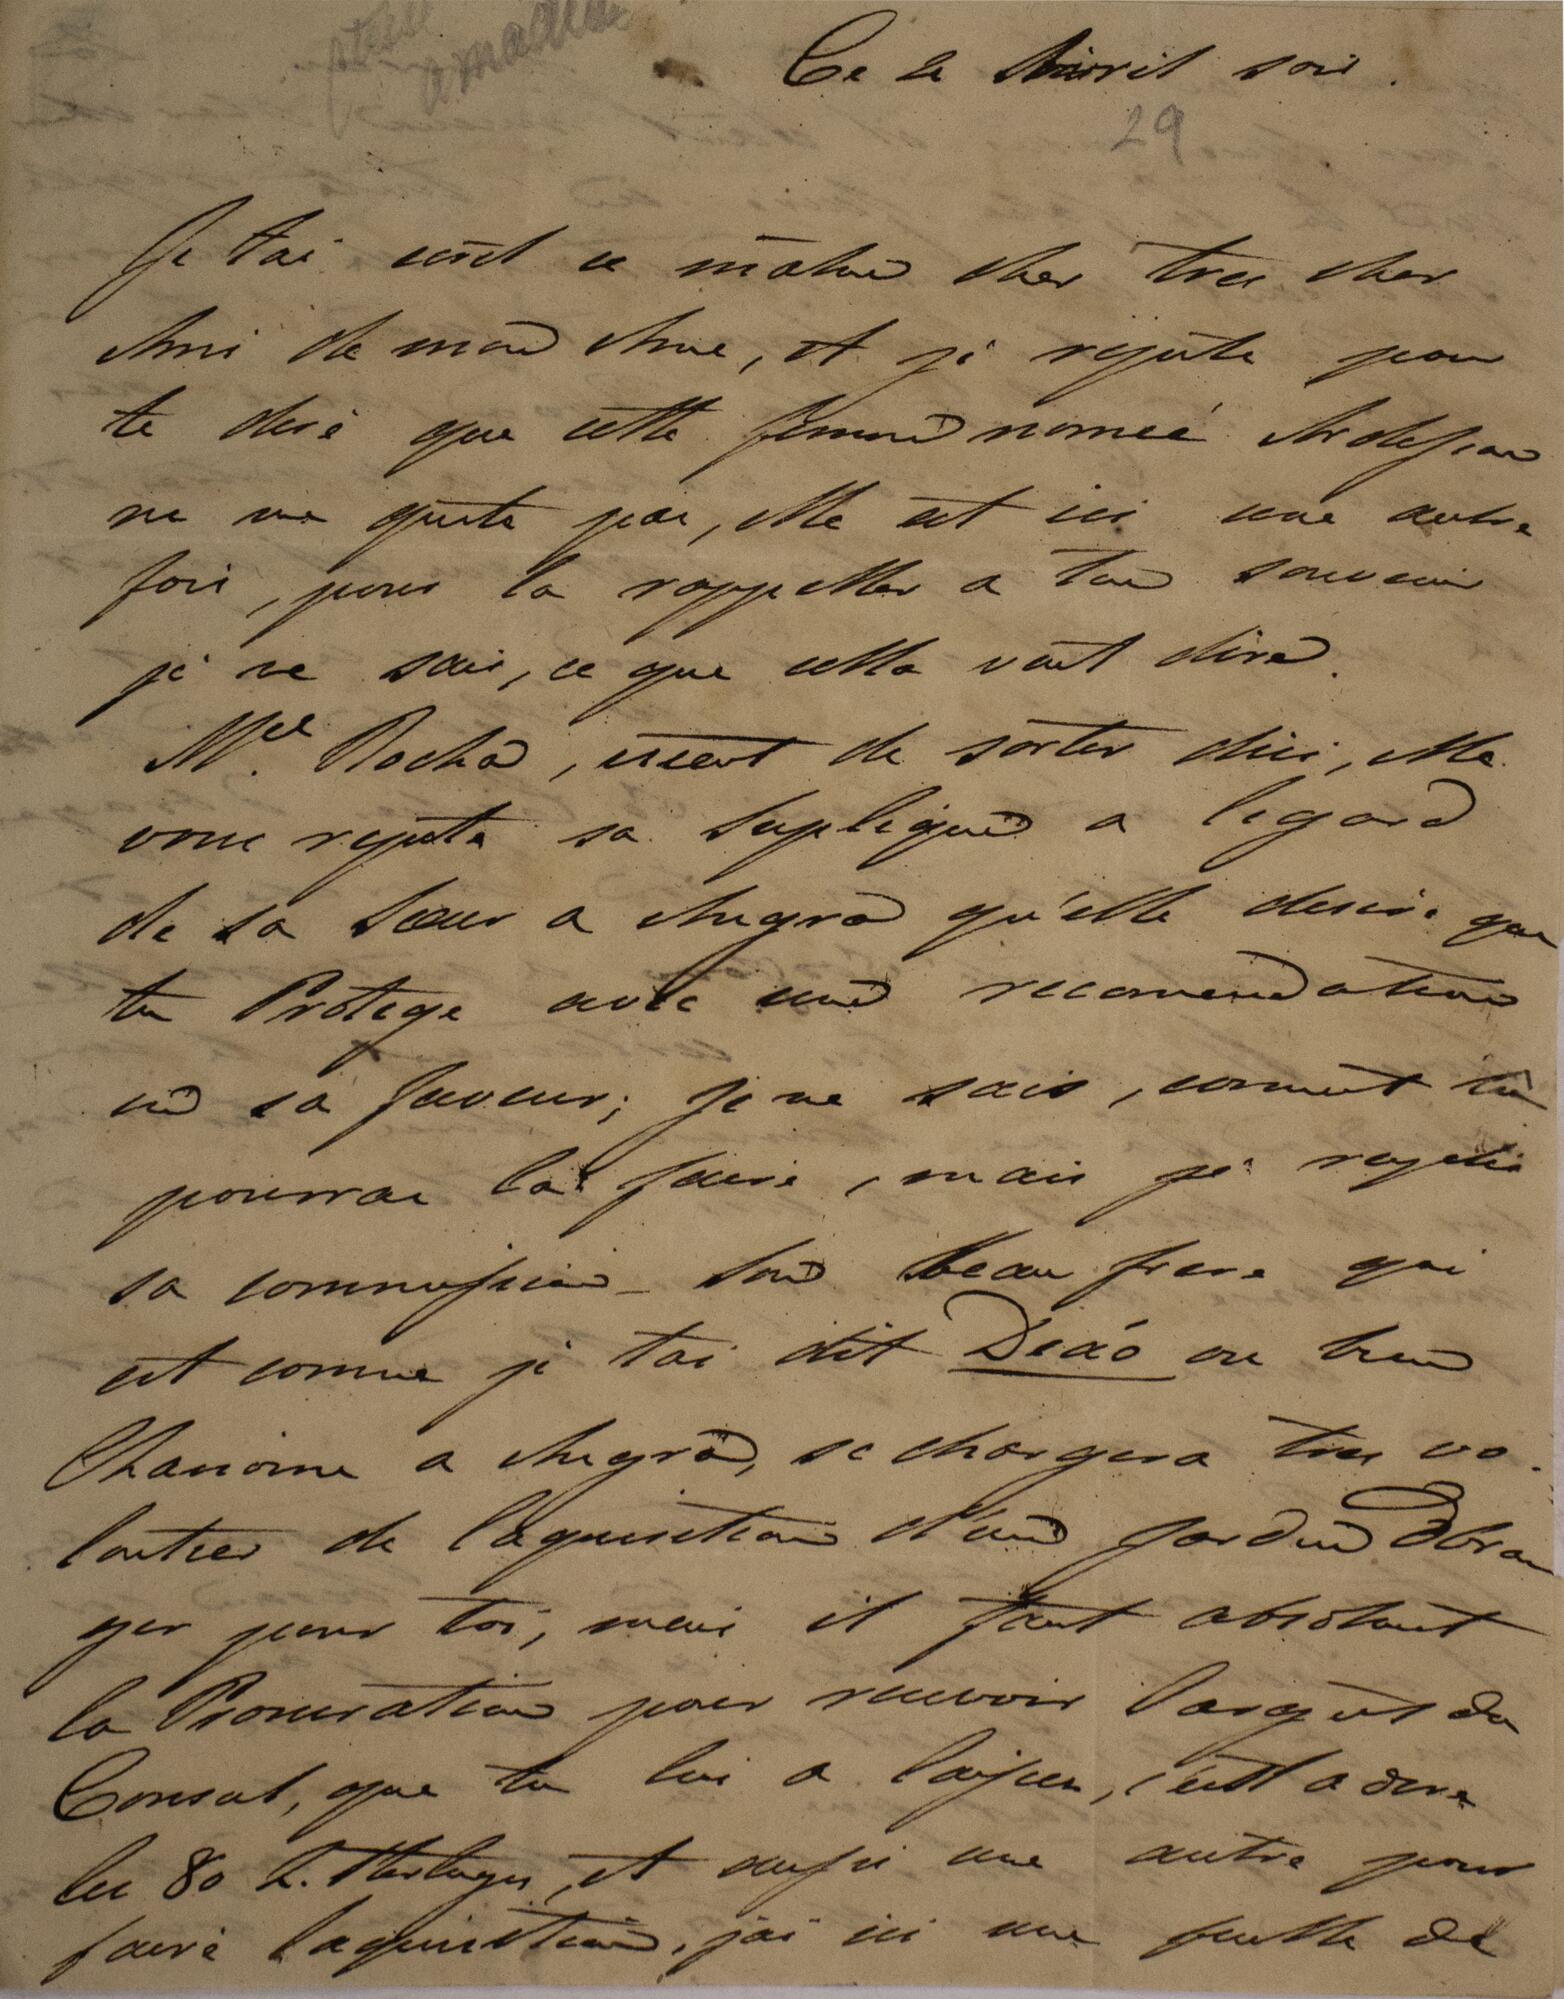 amadeu
Ce 2 Avril soir.
29
Je tai ecrit ce matin cher tres cher
Ami de mon Ame, et je rejute pour
te dire que cette femme nomeé Ardesson
ne me quite pas, elle est ici une autre
fois, pour la rappeller a ton souvenir
je ne sais, ce que cella veut dire.
Mel. Rocha, vient de sortir dici, elle
vous rejute sa suplique a legard
de sa Sœur a Angra qu'elle desire que
tu Protege avec une recomendation
en sa faveur; je ne sais, coment tu
pourrai la faire, mais je rejete
sa commission - Son beau frere qui
est comme je tai dit Deáo ou bien
Chanoine a Angra, se chargera tres vo
lontier de laquisition d'un Jardin Doran
ger pour toi, mais il faut absolument
la Procuration pour recevoir l'argent du
Consul, que tu lui a laisser, c'est a dire
les 80 L. Sterlings, et aussi une autre pour
faire laquisition. jai ici une feulle de